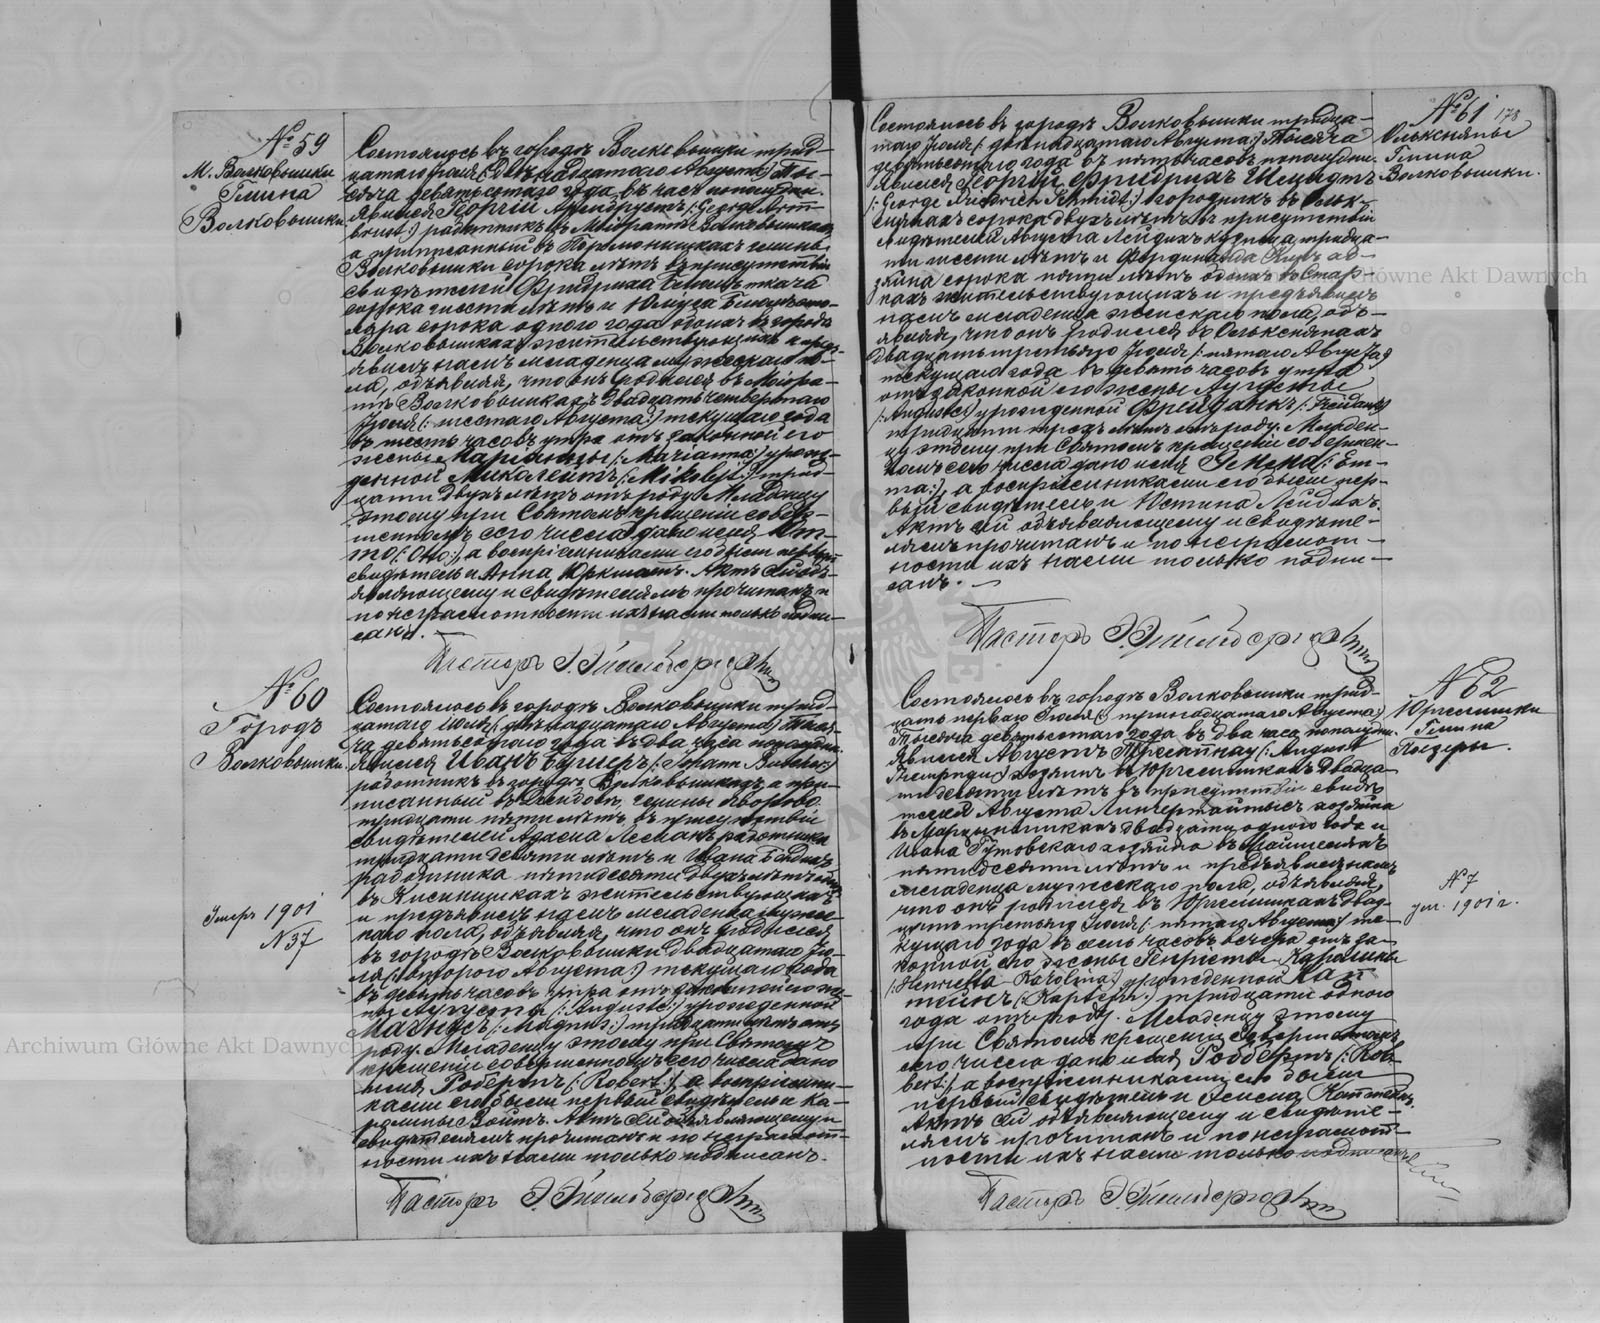 № 59
М. Волковышки
Гмина
Волковышки.
Состоялось въ городѣ Волковышки трид-
цатаго Іюля (: двѣнадцатаго Августа:) Ты-
сяча девятьсотаго года въ часъ пополудни.
Явился Георгій Армбрустъ (: George Arm-
brust:) работникъ въ Маіоратѣ Волковышкахъ,
а приписанный въ гмины
Волковышки сорока лѣтъ въ присутствіи
свидѣтелей Фридриха ткача
сорока шести лѣтъ и Юлиуса сто-
ляра сорока одного года обоихъ въ городѣ
Волковышкахъ жительствующихъ и предъ-
явилъ намъ младенца мужескаго по-
ла, объявляя, что онъ родился въ Маіора-
тѣ Волковышкахъ двадцать четвертаго
Іюля (: шестаго Августа:) текущаго года
въ шесть часовъ утра отъ законной его
жены Маріанны (: Marianna:) урож-
денной Миколейтъ (: Mikoleit:) трид-
цати двухъ лѣтъ отъ роду. Младенцу
этому при Святомъ крещеніи совер-
шенномъ сего числа дано имя От-
то (: Otto:), а воспріемниками его были первый
свидѣтель и Анна Юркшатъ. Актъ сей объ-
являющему и свидѣтелямъ прочитанъ и
по неграмотности ихъ нами только подпи-
санъ.
Пасторъ
№ 60
Городъ
Волковышки.
Состоялось въ городѣ Волковышки трид-
цатаго Іюля (: двѣнадцатаго Августа:) Тыся-
ча девятьсотаго года въ два часа пополудни.
Явился Иванъ
работникъ въ городѣ Волковышкахъ, а при-
писанный въ гмины
тридцати пяти лѣтъ, въ присутствіи
свидѣтелей Адама Леманъ работника
тридцати девяти лѣтъ и Ивана
работника пятидесяти двухъ лѣтъ
въ жительствующихъ
и предъявилъ намъ младенца муже-
скаго пола, объявляя, что онъ родился
въ городѣ Волковышки двадцатаго Ію-
ля (: втораго Августа:) текущаго года
въ девять часовъ утра отъ законной его же-
ны Августы (: Auguste:) урожденной
Магнусъ (: Magnus:) тридцати лѣтъ отъ
роду. Младенцу этому при Святомъ
крещеніи совершенномъ сего числа дано
имя Робертъ (: Robert:), а воспріемни-
ками его были первый свидѣтель и Ка-
ролина Войтъ. Актъ сей объявляющему и
свидѣтелямъ прочитанъ и по неграмот-
ности ихъ нами только подписанъ.
Пасторъ
Умеръ 1901
№ 37
№ 61
178
Ольксняны
Гмина
Волковышки.
Состоялось въ городѣ Волковышки тридца-
таго Іюля (: двѣнадцатаго Августа:) Тысяча
девятьсотаго года въ пять часовъ пополудни.
Явился Георгій Фридрихъ Шмидтъ
(: George Friedrich Schmidt:) огородникъ въ Ольк-
снянахъ сорока двухъ лѣтъ въ присутствіи
свидѣтелей Августа Лейдихъ кузнеца тридца-
ти шести лѣтъ и Фердинанда хо-
зяина сорока пяти лѣтъ обоихъ въ Стар-
кахъ жительствующихъ и предъявилъ
намъ младенца женскаго пола, объ-
являя, что онъ родился въ Олькснянахъ
двадцать третьяго Іюля (: пятаго Августа:)
текущаго года въ девять часовъ утра
отъ законной его жены Августы
(: Auguste:) урожденной Фрейданкъ (: Freidank:)
тридцати трехъ лѣтъ отъ роду. Младен-
цу этому при Святомъ крещеніи совершен-
номъ сего числа дано имя Эмма (: Em-
ma:), а воспріемниками его были пер-
вый свидѣтель и Юстина Лейдихъ.
Актъ сей объявляющему и свидѣте-
лямъ прочитанъ и по неграмот-
ности ихъ нами только подпи-
санъ.
Пасторъ
№ 62
Юргелишки
Гмина
Состоялось въ городѣ Волковышки трид-
цать перваго Іюля (: тринадцатаго Августа:)
Тысяча девятьсотаго года въ два часа пополудни.
Явился Августъ (: August
хозяинъ въ Юргелишкахъ двадца-
ти девяти лѣтъ въ присутствіи свидѣ-
телей Августа хозяина
въ двадцати одного года и
Ивана Гутовскаго хозяина въ
пятидесяти лѣтъ и предъявилъ намъ
младенца мужескаго пола, объявляя,
что онъ родился въ Юргелишкахъ двад-
цать третьяго Іюля (: пятаго Августа:) те-
кущаго года въ семь часовъ вечера отъ за-
конной его жены Генріеты Каролины
(: Henrietta Karolina:) урожденной Кап-
тейнъ (: Kaptein:) тридцати одного
года отъ роду. Младенцу этому
при Святомъ крещеніи совершенномъ
сего числа дано имя Роббертъ (: Rob-
bert:) а воспріемниками его были
первый свидѣтель и
Актъ сей объявляющему и свидѣте-
лямъ прочитанъ и по неграмот-
ности ихъ нами только подписанъ.
Пасторъ
№ 7
ум. 1901 г.
Archiwum Główne Akt Dawnych
Główne Akt Dawnych